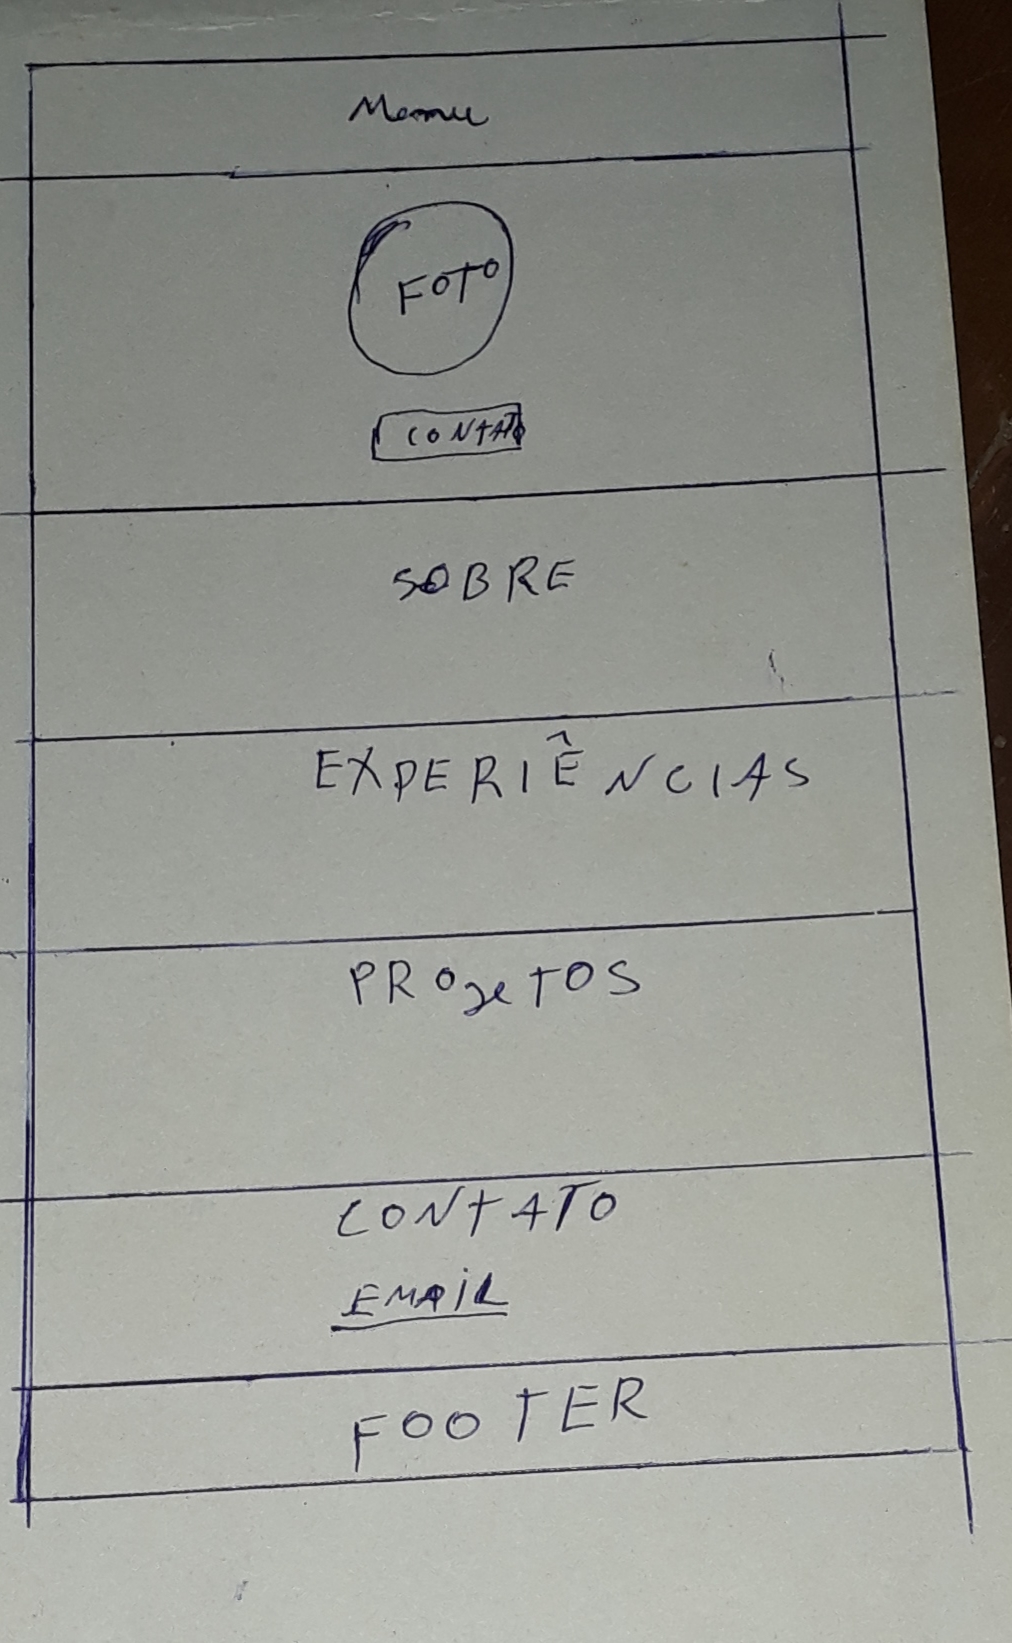 Menu
FOTO
CONTATO
SOBRE
EXPERIÊNCIAS
PROjeTOS
CONTATO
EMAiL
FOOTER